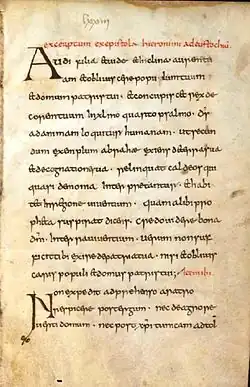 excerptum ex epistola hieronimi ad eustochiũ
Audi filia et uide et inclina aurem tu
am et obliuiscere populum tuum
et domum patris tui et concupiscet rex de
corem tuum In xl mo quarto psalmo Ds
ad animam loquitur humanam ut secun
dum exemplum abrahæ exiens de terra sua
et de cognatione sua relinquat caldeos qui
quasi demonia Inter pretantur et habi
tet In regione uiuentium quam alibi pro
pheta suspirat dicens Credo uidere bona
dnī In terra uiuentium Uerum non suf
ficit tibi exire de patria tua nisi obliuis
caris populi et domus patris tui
Non expedit adprehenso aratro
respicere post tergum nec de agro re
uerti domum nec post xpī tunicam ad tol